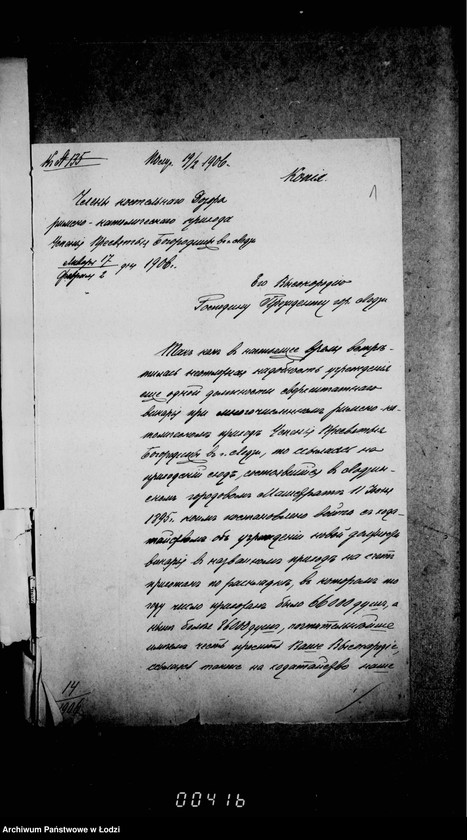 № 135
Получ. 19/2 1906.
Копія.
1
Члены костельнаго Дозора
римско-католическаго прихода
Успенія Пресвятыя Богородицы въ г. Лодзи
Января 17
Февраля 2 дня 1906 г.
Его Высокородію
Господину Президенту гор. Лодзи
Такъ какъ въ настоящее время встрѣ-
тилась надобность учрежденія
еще одной должности сверхштатнаго
викарія при многочисленномъ римско-ка-
толическомъ приходѣ Успенія Пресвятыя
Богородицы въ г. Лодзи, то ссылаясь на
приходскій сходъ, состоявшійся въ Лодзин-
скомъ городовомъ Магистратѣ 11 Іюня
1895 г. коимъ постановлено войти съ хода-
тайствомъ объ учрежденіи новой должности
викарія въ названномъ приходѣ на счетъ
прихожанъ по раскладкѣ, въ которомъ то
году число прихожанъ было 66000 душъ, а
нынѣ болѣе 86000 душъ, почтительнѣйше
имѣемъ честь просить Ваше Высокородіе,
ссылаясь также на ходатайство наше
14
1906
00416
Archiwum Państwowe w Łodzi